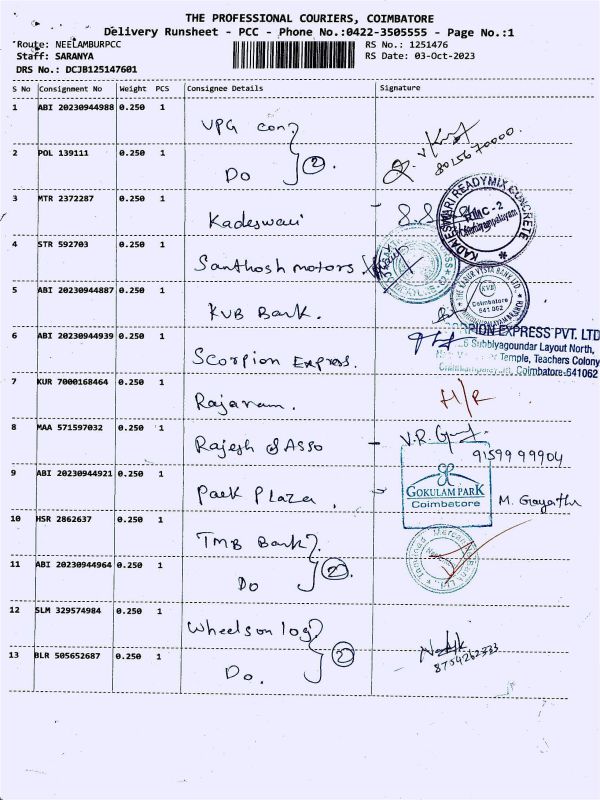 THE PROFESSIONAL COURIERS, COIMBATORE
Delivery Runsheet - PCC - Phone No.:0422-3505555 - Page No.:1
Route: NEELAMBURPCC RS No.: 1251476
Staff: SARANYA RS Date: 03-Oct-2023
DRS No.: DCJB125147601
S No Consignment No Weight PCS Consignee Details Signature
1 ABI 20230944988 0.250 1 VPG con
80156 70000.
2 POL 139111 0.250 1 Do 2.
3 MTR 2372287 0.250 1 Kadeswari
KADAIESWARI READYMIX CONCRETE
4 STR 592703 0.250 1 Santhosh motors.
5 ABI 20230944887 0.250 1 KVB Bank.
THE KARUR VYSYA BANK LTD.
KVB
Coimbatore
641 062
6 ABI 20230944939 0.250 1 Scorpion Express.
SCORPION EXPRESS PVT. LTD
Subbiyagoundar Layout North,
Temple, Teachers Colony
Coimbatore-641062
7 KUR 7000168464 0.250 1 Rajaram. H/R
8 MAA 571597032 0.250 1 Rajesh & Asso -
91599 99904
9 ABI 20230944921 0.250 1 Park Plaza.
GOKULAM PARK
Coimbatore
M. Gayathri
10 HSR 2862637 0.250 1 TMB Bank
11 ABI 20230944964 0.250 1 Do 2.
12 SLM 329574984 0.250 1 Wheels on log
13 BLR 505652687 0.250 1 Do. 2
8754262333